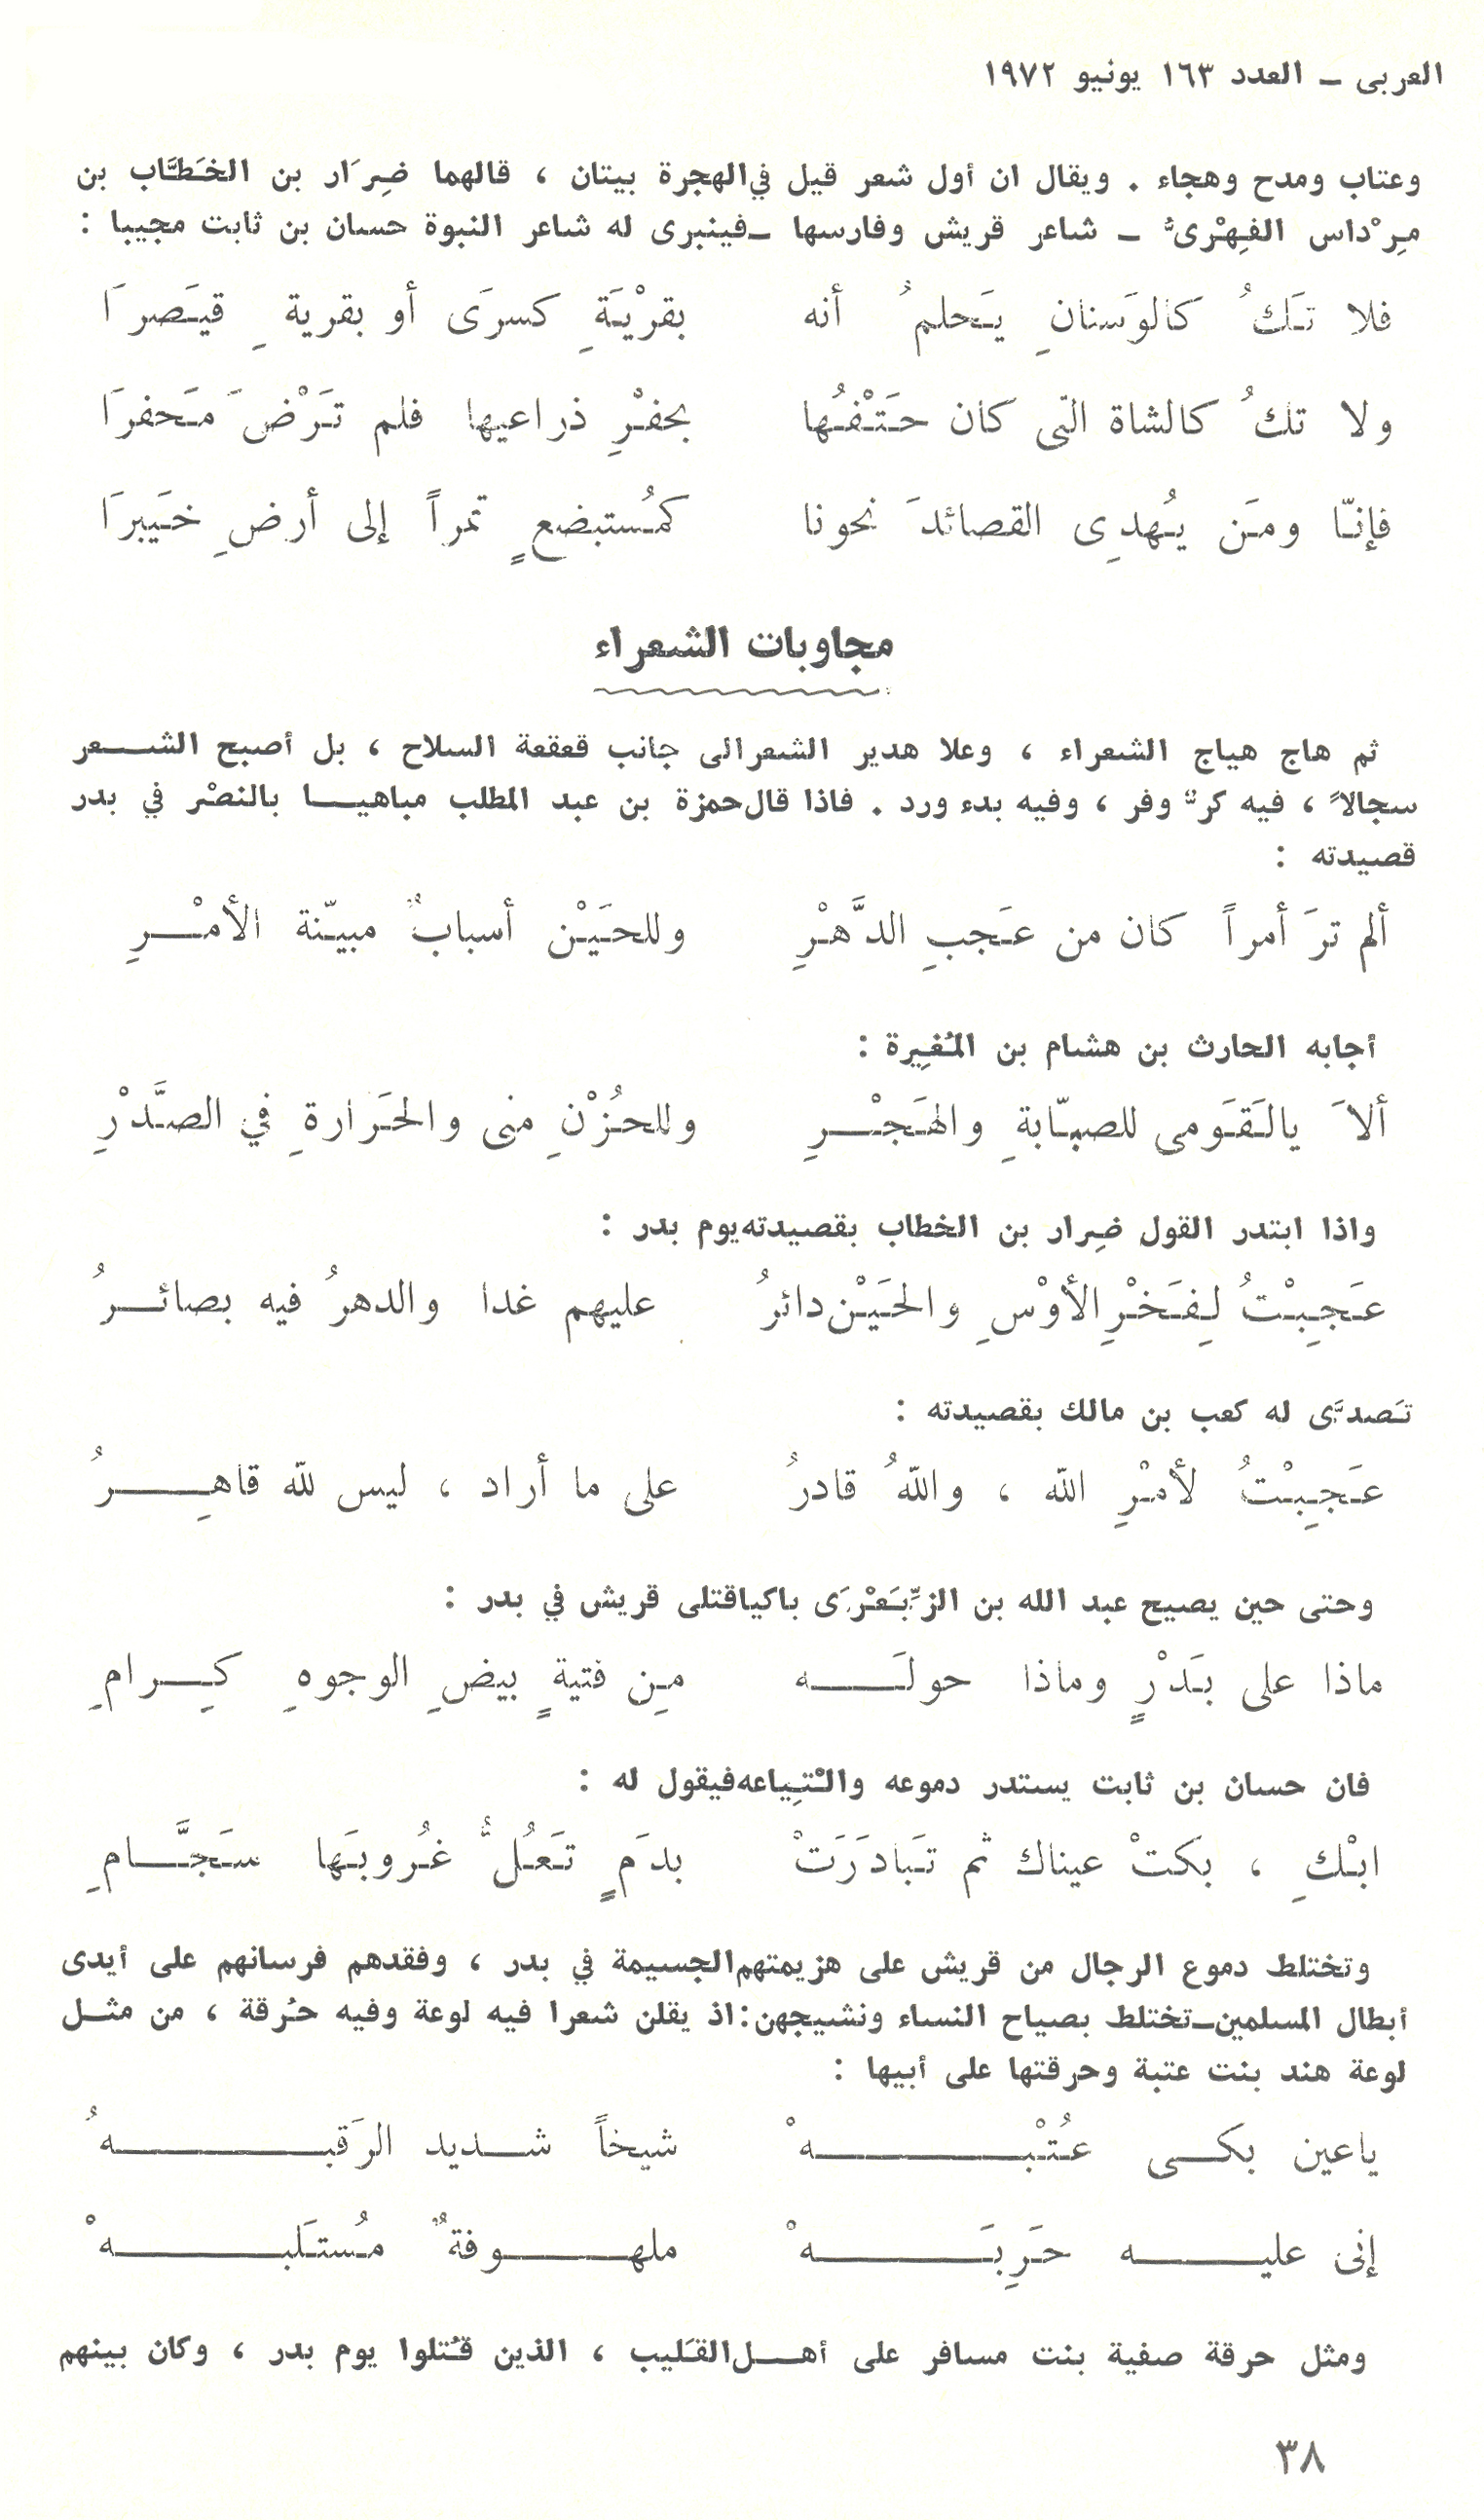 العربى ــ العدد ١٦٣ يونيو ١٩٧٢
وعتاب ومدح وهجاء . ويقال ان أول شعر قيل في الهجرة بيتان ، قالهما ضِرَار بن الخَطَّاب بن
مِرْداس الفِهْرىُّ ــ شاعر قريش وفارسها ــ فينبرى له شاعر النبوة حسان بن ثابت مجيبا :
فلا تَكُ كالوَسنانِ يَحلمُ أنه بقرْيَةِ كسرَى أو بقريةِ قيَصرَا
ولا تكُ كالشاة التى كان حَتْفُها بحفْرِ ذراعيها فلم تَرْضَ مَحفرَا
فإنّا ومَن يُهدِى القصائدَ نحونا كمُستبضعٍ تمراً إلى أرضِ خَيبرَا
مجاوبات الشعراء
ثم هاج هياج الشعراء ، وعلا هدير الشعر الى جانب قعقعة السلاح ، بل أصبح الشعر
سجالاً ، فيه كرٌّ وفر ، وفيه بدء ورد . فاذا قال حمزة بن عبد المطلب مباهيا بالنصْر في بدر
قصيدته :
ألم ترَ أمراً كان من عَجبِ الدَّهْرِ وللحَيْن أسبابٌ مبيّنة الأمْرِ
أجابه الحارث بن هشام بن المُغِيرة :
ألاَ يالَقَومى للصبّابةِ والهَجْرِ وللحُزْنِ منى والحَرارةِ في الصَّدْرِ
واذا ابتدر القول ضِرار بن الخطاب بقصيدته يوم بدر :
عَجِبْتُ لِفَخْرِ الأوْسِ والحَيْن دائرُ عليهم غدا والدهرُ فيه بصائرُ
تَصدَّى له كعب بن مالك بقصيدته :
عَجِبْتُ لأمْرِ الله ، واللهُ قادرُ على ما أراد ، ليس لله قاهِرُ
وحتى حين يصيح عبد الله بن الزِّبَعْرَى باكيا قتلى قريش في بدر :
ماذا على بَدْرٍ وماذا حولَه مِن فتيةٍ بيضِ الوجوهِ كِرامِ
فان حسان بن ثابت يستدر دموعه والْتِياعه فيقول له :
ابْكِ ، بكتْ عيناك ثم تَبادَرَتْ بدَمٍ تَعُلُّ غُروبَها سَجَّامِ
وتختلط دموع الرجال من قريش على هزيمتهم الجسيمة في بدر ، وفقدهم فرسانهم على أيدى
أبطال المسلمين ــ تختلط بصياح النساء ونشيجهن : اذ يقلن شعرا فيه لوعة وفيه حُرقة ، من مثل
لوعة هند بنت عتبة وحرقتها على أبيها :
ياعين بكى عُتْبهْ شيخاً شديد الرَقبهُ
إنى عليه حَرِبَهْ ملهوفةٌ مُستَلبهْ
ومثل حرقة صفية بنت مسافر على أهل القَليب ، الذين قُتلوا يوم بدر ، وكان بينهم
٣٨